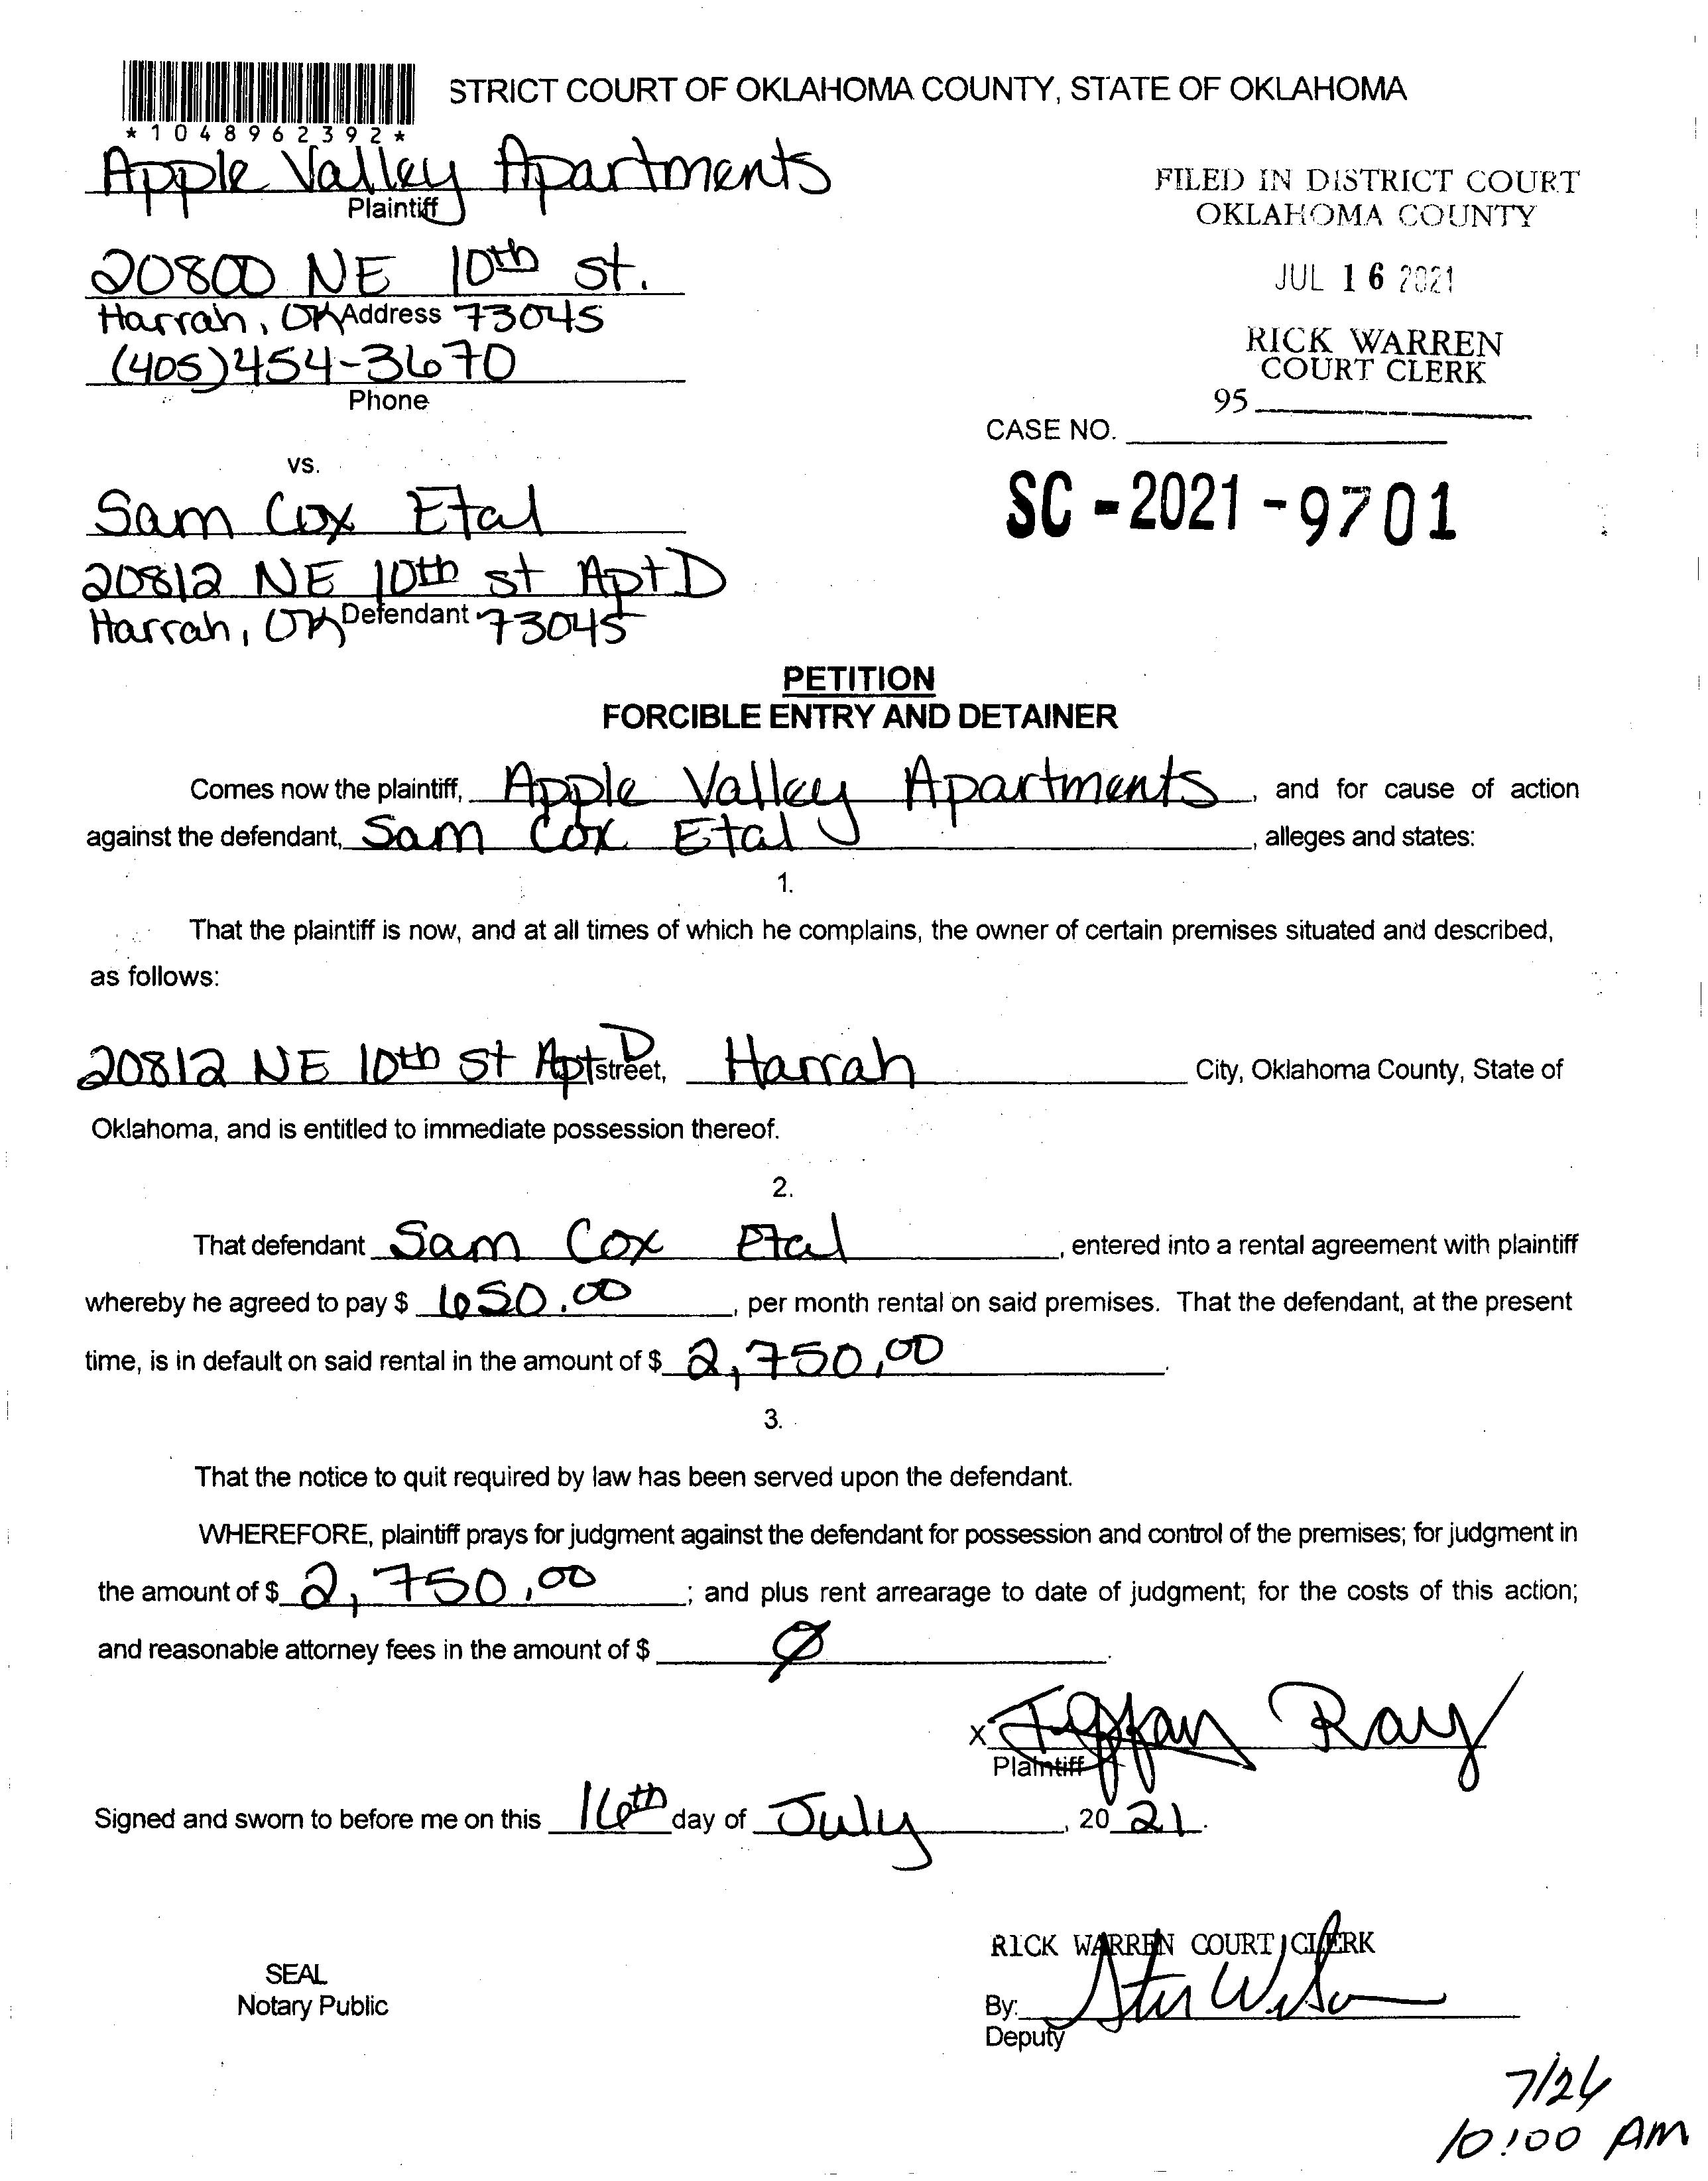 STRICT COURT OF OKLAHOMA COUNTY, STATE OF OKLAHOMA
*1048962392*
Apple Valley Apartments
Plaintiff
FILED IN DISTRICT COURT
OKLAHOMA COUNTY
20800 NE 10th st.
Harrah, OK Address 73045
JUL 16 2021
(405)454-3670
Phone
RICK WARREN
COURT CLERK
95
CASE NO.
vs.
SC-2021-9701
Sam Cox Etal
20812 NE 10th st Apt D
Harrah, OK Defendant 73045
PETITION
FORCIBLE ENTRY AND DETAINER
Comes now the plaintiff, Apple Valley Apartments, and for cause of action
against the defendant, Sam Cox Etal, alleges and states:
1.
That the plaintiff is now, and at all times of which he complains, the owner of certain premises situated and described,
as follows:
20812 NE 10th St Apt D street, Harrah City, Oklahoma County, State of
Oklahoma, and is entitled to immediate possession thereof.
2.
That defendant Sam Cox Etal, entered into a rental agreement with plaintiff
whereby he agreed to pay $ 650.00, per month rental on said premises. That the defendant, at the present
time, is in default on said rental in the amount of $ 2,750.00.
3.
That the notice to quit required by law has been served upon the defendant.
WHEREFORE, plaintiff prays for judgment against the defendant for possession and control of the premises; for judgment in
the amount of $ 2,750.00; and plus rent arrearage to date of judgment; for the costs of this action;
and reasonable attorney fees in the amount of $ Ø.
X Ray
Plaintiff
Signed and sworn to before me on this 16th day of July, 2021.
RICK WARREN COURT CLERK
SEAL
Notary Public
By:
Deputy
7/26
10:00 AM